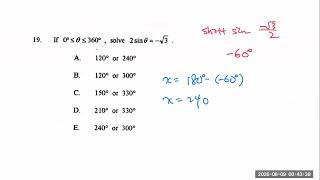 19. If 0° ≤ θ ≤ 360° , solve 2 sin θ = −√3 .
A. 120° or 240°
B. 120° or 300°
C. 150° or 330°
D. 210° or 330°
E. 240° or 300°
shift sin −√3/2
−60°
x = 180° − (−60°)
x = 240
2026-08-09 00:43:39